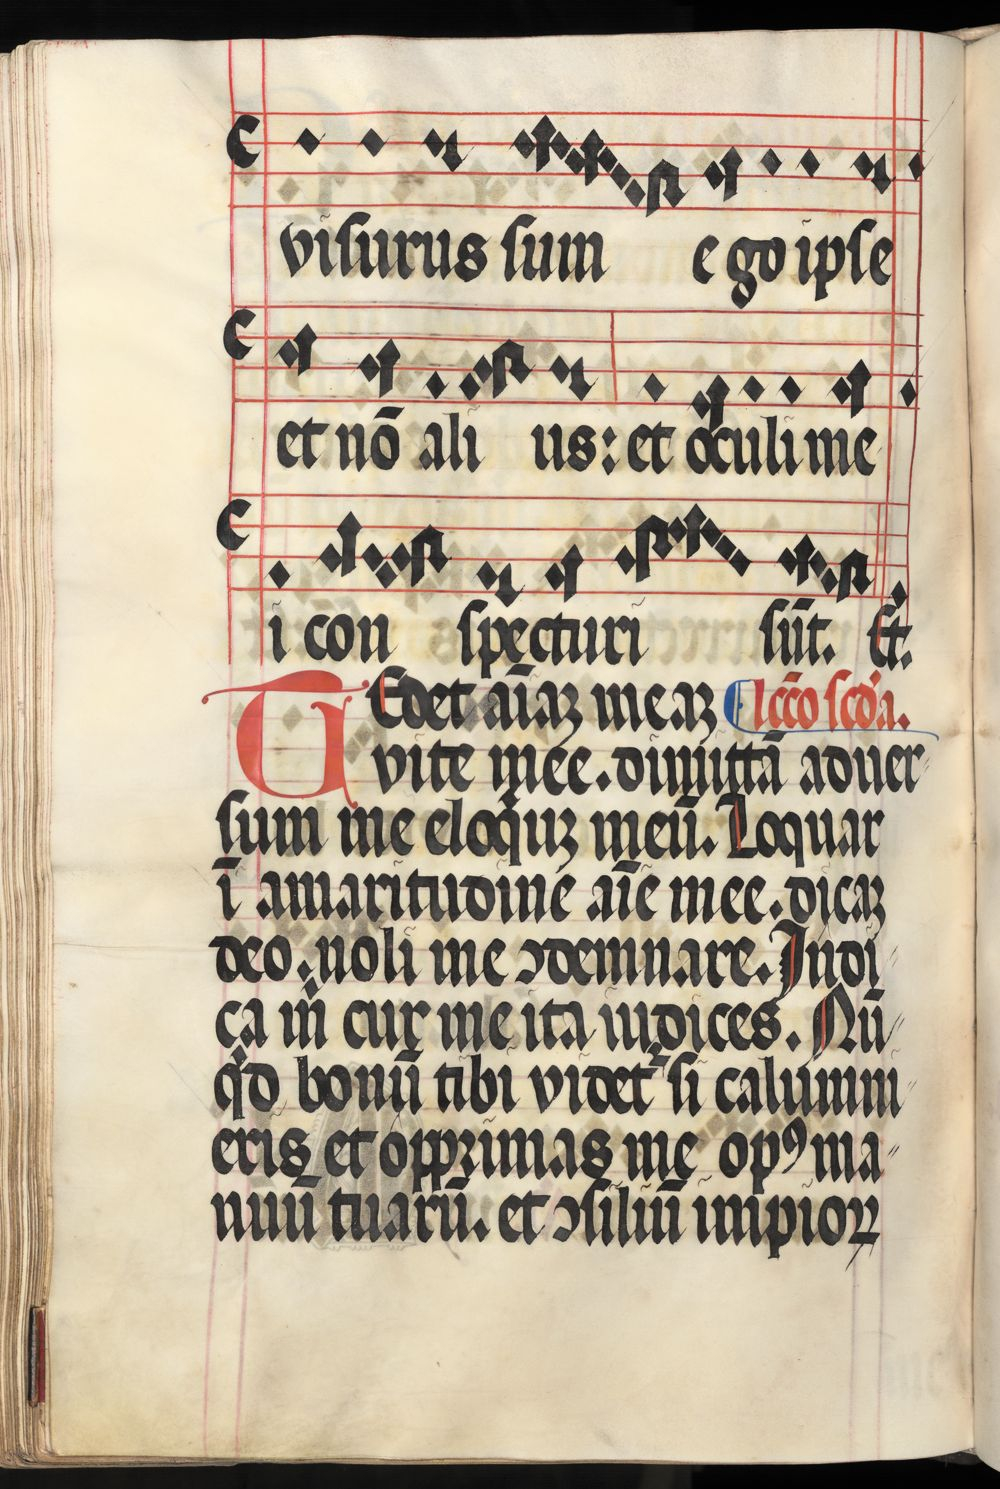 visurus sum ego ipse
et nō ali us: et oculi me
i con specturi sūt. Et.
TEdet aīaꝫ meaꝫ Lcco scda.
vite mee. dimittā aduer
sum me eloqͥuꝫ meū. Loquar
ī amaritudine aīe mee. dicaꝫ
deo. noli me ↄdemnare. Indi
ca m̄ cur me ita iudices. Nū
qͥd bonū tibi videt si calumni
eris et opprimas me opꝰ ma
nuū tuarū. et ↄsiliū impioꝝ